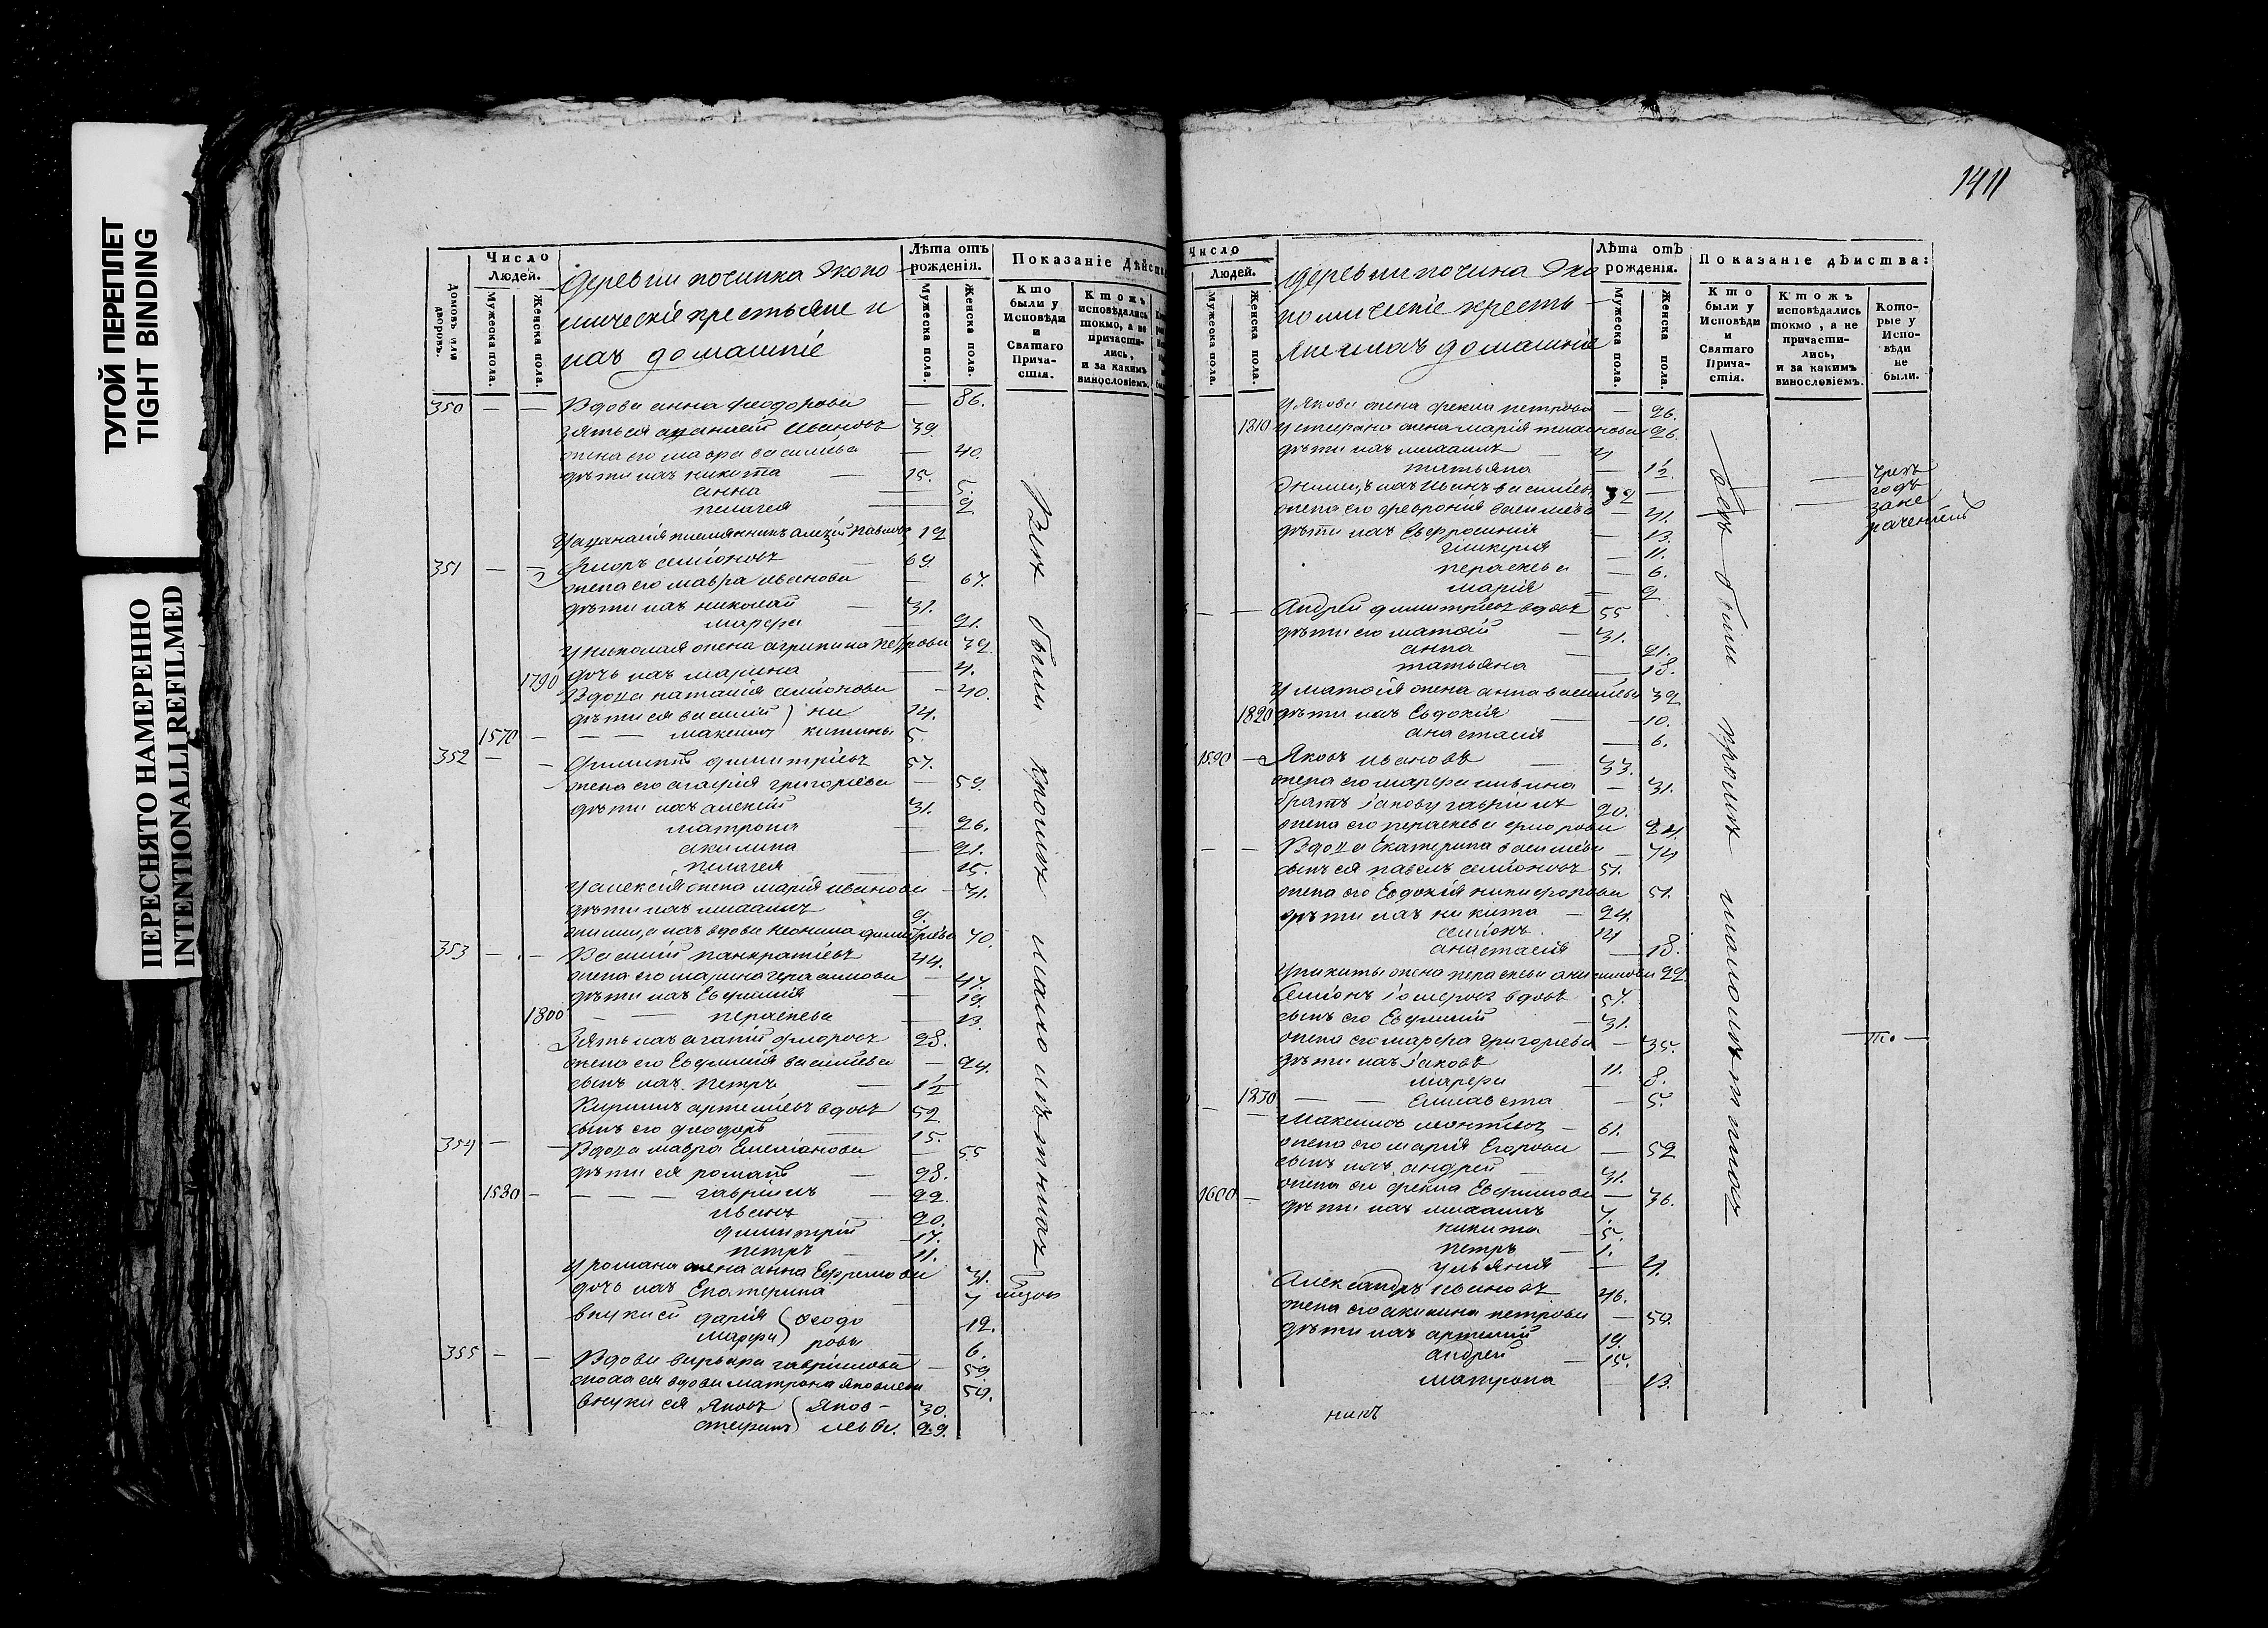 ТУГОЙ ПЕРЕПЛЕТ
TIGHT BINDING
ПЕРЕСНЯТО НАМЕРЕННО
INTENTIONALLI REFILMED
Число
Людей.
Домовъ или дворовъ.
Мужеска пола.
Женска пола.
деревни починка Эконо
мическiе крестьяне и
ихъ домашнiе
Лѣта отъ
рожденiя.
Мужеска пола.
Женска пола.
Показанiе Дѣйств
Кто
были у
Исповѣди
и
Святаго
Прича-
стiя.
Ктожъ
исповѣдались
токмо, а не
причасти-
лись,
и за какимъ
винословiемъ.
350 — — Вдова анна феодорова — 86.
зять ея афанасей Ивановъ 39.
жена его мавра васильева — 40.
дѣти ихъ никита — 15.
анна — 5.
пелагея — 2
У афанасiя племянникъ алексѣй Павловъ 12
351 — — Флоръ семiоновъ — 69
жена его мавра иванова — 67.
дѣти ихъ николай — 31.
марфа — 21.
У николая жена агрипина петрова 32
1790 дочь ихъ марина — 4.
Вдова наталiя семiонова — 40.
дѣти ея василiй ) ни 14.
1570 — — — максимъ китины 5.
352 — — Филипъ димитрiевъ 57.
жена его агафiя григорiева — 59.
дѣти ихъ алексiй 31.
матрона — 26.
акилина — 21.
пелагея — 15.
У алексiя жена марiя иванова — 31.
дѣти ихъ михаилъ 9.
ихъ вдова неонила димитрiева 70.
353 — — Василiй панкратiевъ 44.
жена его марина герасимова — 47.
дѣти ихъ Евфимiя — 19.
1800 — — параскева — 13.
Зять ихъ агапiй флоровъ 28.
жена его Евфимiя васильева — 24.
сынъ ихъ Петръ — 1½
Кирилъ артемiевъ вдовъ 52
сынъ его феодоръ — 15.
354 — — Вдова мавра Емелiанова — 55
дѣти ея романъ — 28.
1580 — — — — гаврiилъ — 22.
иванъ — 20.
димитрiй — 17.
петръ — 11.
У романа жена анна Ефремова 31.
дочь ихъ Екатерина — 7
внуки ей дарiя ) феодо 12.
марфа ) ровы 6.
355 — — Вдова варвара гаврилова — 59.
сноха ея вдова матрона Яковлева 54.
внуки ея Яковъ ) Яков- 30.
стефанъ ) левы. 29.
Всѣ были кромѣ малолѣтныхъ
1411
Число
Людей.
Мужеска пола.
Женска пола.
деревни почина Эко
номическiе кресть-
яне и ихъ домашнiе
Лѣта отъ
рожденiя.
Мужеска пола.
Женска пола.
Показанiе дѣйства:
Кто
были у
Исповѣди
и
Святаго
Прича-
стiя.
Ктожъ
исповѣдались
токмо, а не
причасти-
лись,
и за какимъ
винословiемъ.
Кото-
рые у
Испо-
вѣди
не
были.
У Якова жена фекла петрова — 26.
1810 У стефана жена марiя 26.
дѣти ихъ михаилъ — 4
татьяна — 1½
ихъ Иванъ васильевъ 32 —
жена его феврониiя васильева — 41.
дѣти ихъ Евфросинiя — 13.
гликерiя — 11.
параскева — 6.
марiя — 2
— — Андрей димитрiевъ вдовъ 55
дѣти его матөiй — 31.
анна — 21.
татьяна — 18.
У матөiя жена анна васильева 32
1820 дѣти ихъ Евдокiя — 10.
анастасiя — 6.
1590 — Яковъ ивановъ — 33.
жена его марфа ильина — 31.
братъ iакову гаврiилъ 20.
жена его параскева флорова 24.
— — Вдова Екатерина васильева — 74
сынъ ея павелъ семiоновъ 51.
жена его Евдокiя никифорова 51.
дѣти ихъ никита — 24.
семiонъ 14
анастасiя — 18.
У никиты жена параскева анисимова 22
Семiонъ iосифовъ вдовъ 57.
сынъ его Евфимiй — 31.
жена его марфа григорiева — 35.
дѣти ихъ Iаковъ 11.
марфа — 8.
1830 — — Елисавета — 5.
— — Максимъ леонтiевъ — 61.
жена его марiя Егорова — 52
сынъ ихъ андрей — 31.
жена его фекла Евфимова — 36.
1600 — дѣти ихъ михаилъ 7.
никита — 5.
петръ — 1.
ульянiя — 4.
Александръ ивановъ 46.
жена его акилина петрова — 50.
дѣти ихъ артемiй 19.
андрей — 15.
матрона — 13.
Всѣ были кромѣ малолѣтныхъ
чрезъ
годъ
зане
раченiемъ
то —
никъ